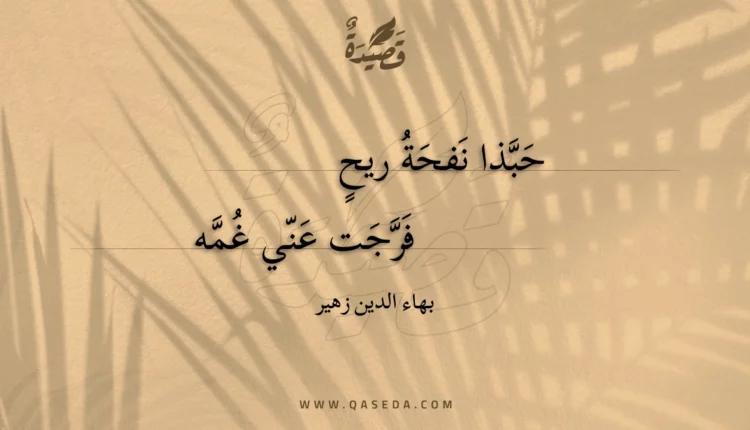 قَصِيدَةٌ
حَبَّذا نَفحَةُ ريحٍ
فَرَّجَت عَنّي غُمَّه
بهاء الدين زهير
WWW.QASEDA.COM